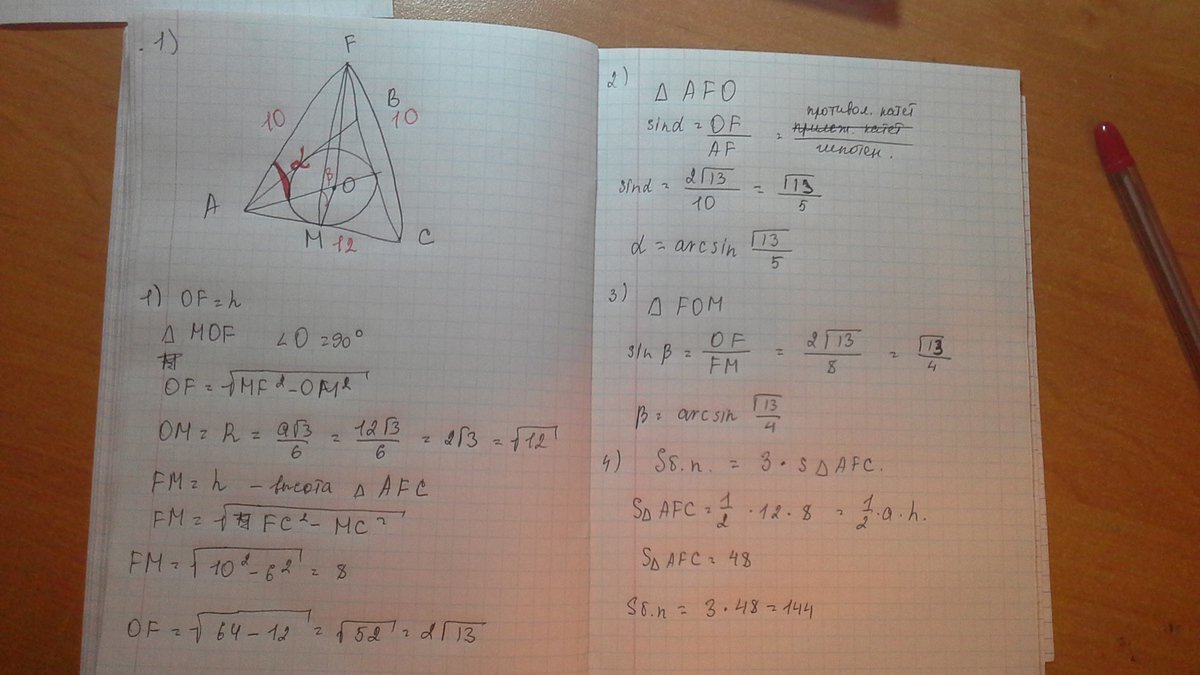 1)
F
B
10
10
α
β
O
A
M
12
C
1) OF = h
Δ MOF ∠O = 90°
OF = √(MF² - OM²)
OM = R = a√3/6 = 12√3/6 = 2√3 = √12
FM = h - высота Δ AFC
FM = √(FC² - MC²)
FM = √(10² - 6²) = 8
OF = √(64 - 12) = √52 = 2√13
2)
Δ AFO
sinα = OF/AF = противол. катет прилеж. катет/гипотен.
sinα = 2√13/10 = √13/5
α = arcsin √13/5
3)
Δ FOM
sin β = OF/FM = 2√13/8 = √13/4
β = arcsin √13/4
4) Sб.п. = 3 · SΔAFC.
SΔAFC = 1/2 · 12 · 8 = 1/2 · a · h.
SΔAFC = 48
Sб.п = 3 · 48 = 144